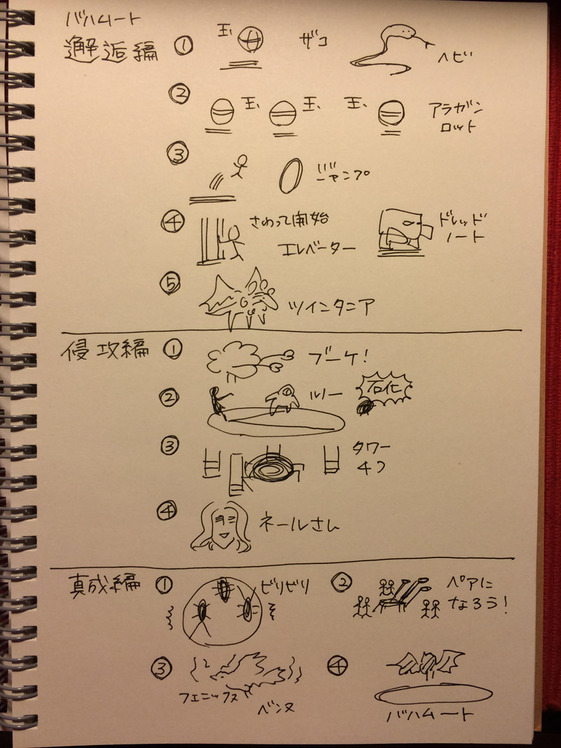 バハムート
邂逅編 ① 玉、 ザコ ヘビ
② 玉、 玉、 玉、 アラガン
ロット
③ ジャンプ
④ さわって開始 ドレッド
エレベーター ノート
⑤ ツインタニア
侵攻編 ① ブーケ!
② ルノー 石化
③ タワー
4つ
④ ネールさん
真成編 ① ビリビリ ② ペアに
なろう!
③ フェニックス ④
ベンヌ バハムート